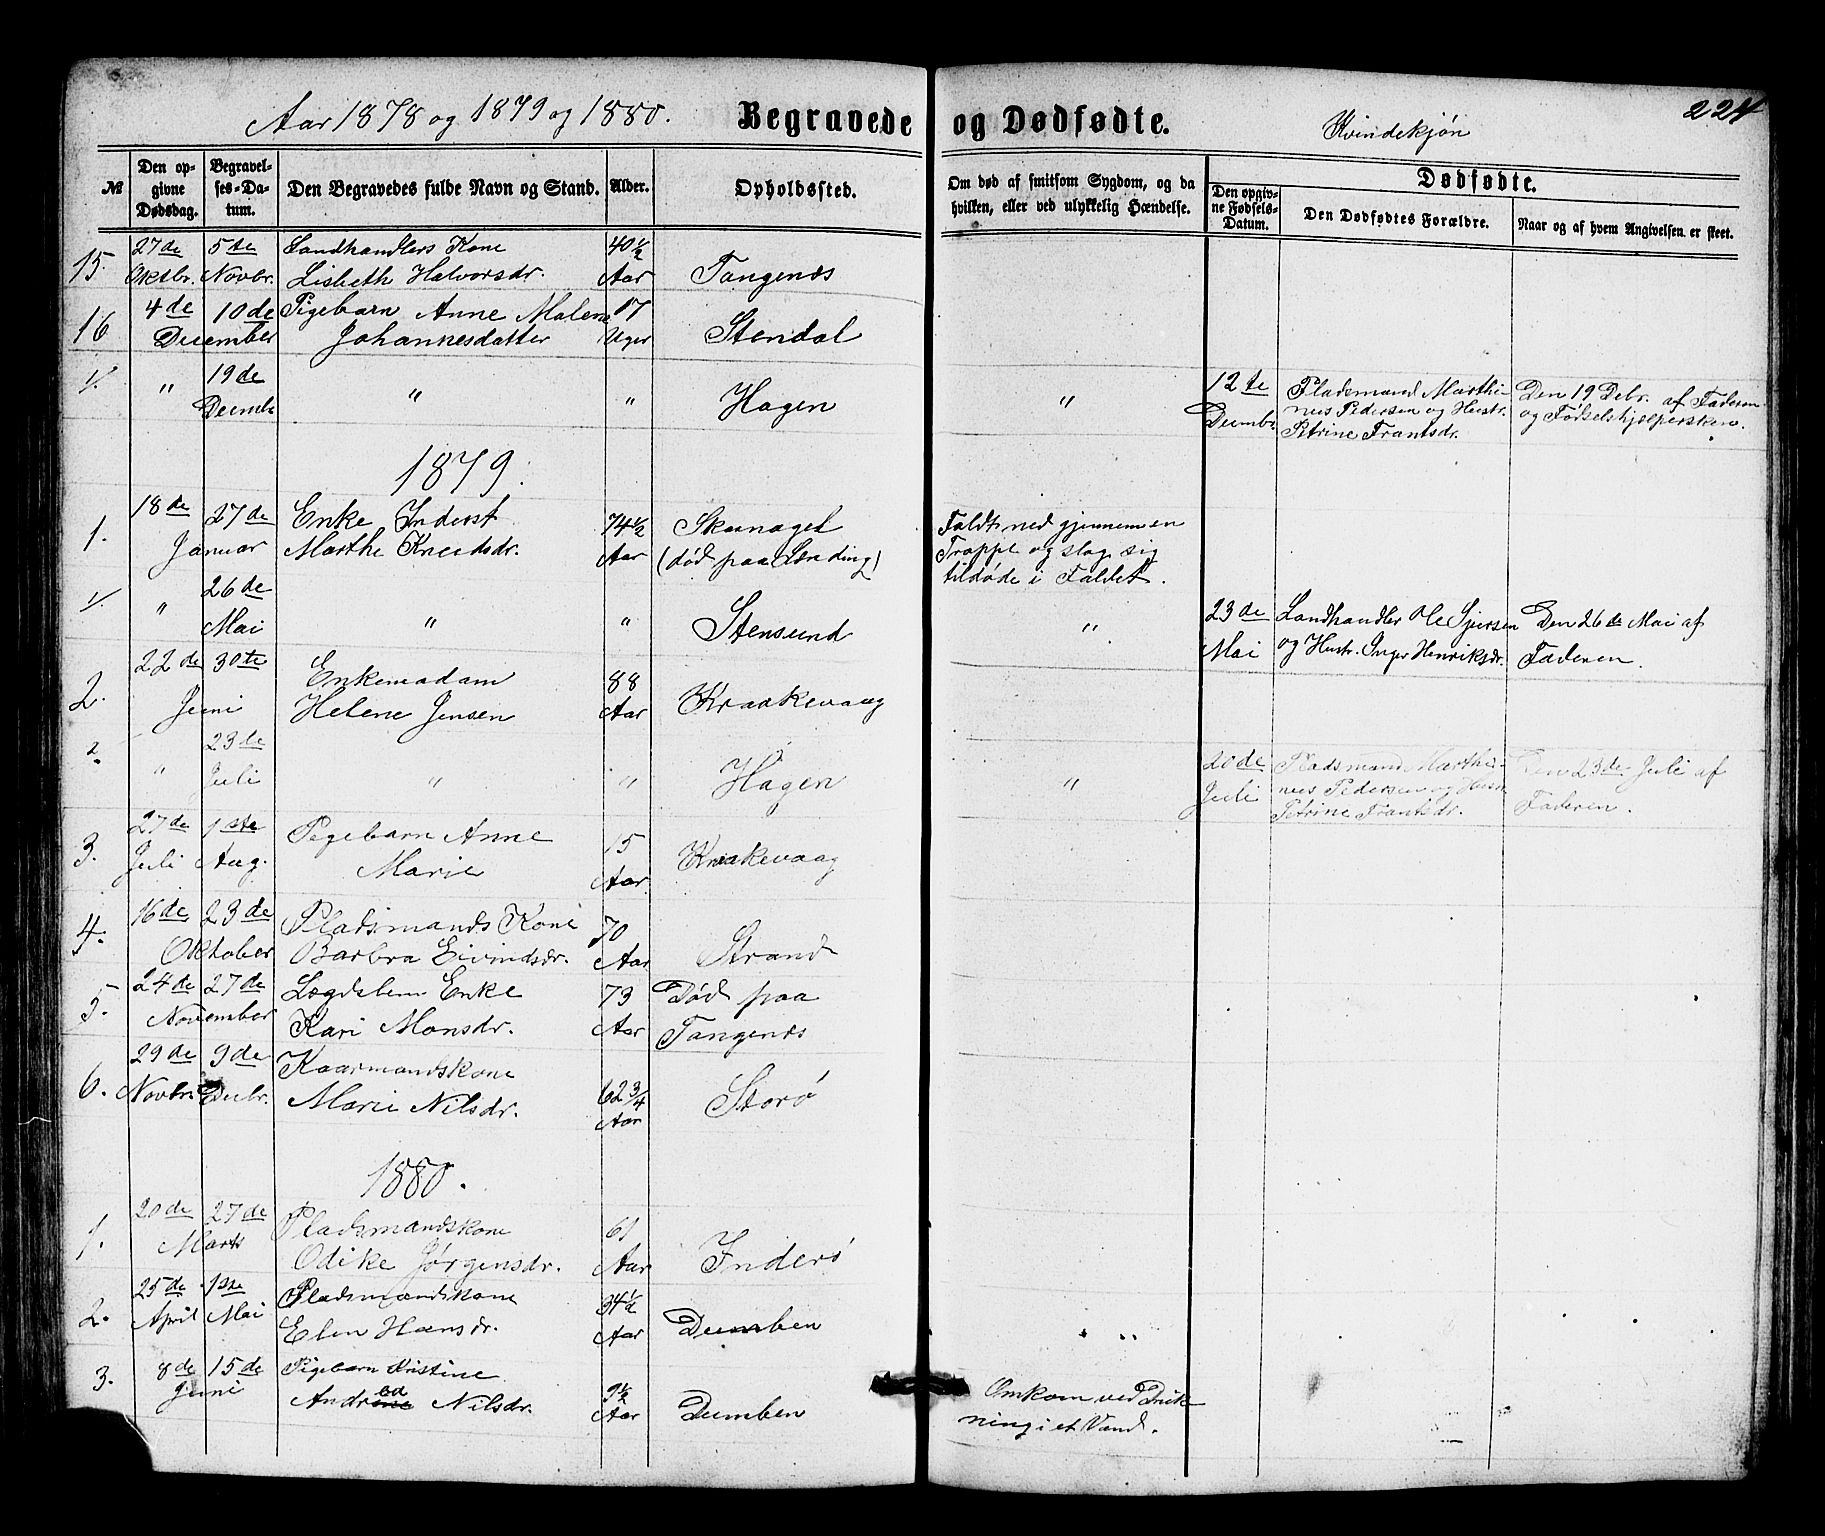 Aar 1878 og 1879 og 1880. Begravede og Dødfødte. Kvindekjøn 224
№ Den opgivne Dødsdag. Begravelses-Datum. Den Begravedes fulde Navn og Stand. Alder. Opholdssted. Om død af smitsom Sygdom, og da hvilken, eller ved ulykkelig Hændelse. Dødfødte.
Den opgivne Fødsels-Datum. Den Dødfødtes Forældre. Naar og af hvem Angivelsen er skeet.
27de 5de Landhandlers Kone 40½
15. Oktbr. Novbr. Lisbeth Halvorsdr. Aar Tangenæs
4de 10de Pigebarn Anne Malene 17
16 December Johannesdatter Uger Stendal
1/. " 19de Decmb " " Hagen " 12te Decmbr Pladsmand Marthi-
nus Pedersen og Hustr.
Petrine Frantsdr.
Den 19 Debr. af Faderen
og Fødselshjælpersken.
1879.
18de 27de Enke Inderst 74½ Skarvaget
1. Januar Marthe Knudsdr. Aar (død paa Lending)
Faldt ned gjennem en
Trappe og slog sig
tildøde i Faldet.
1/. " 26de Mai " " Stensund " 23de Mai Landhandler Ole Sjursen
og Hustr. Inger Henriksdr.
Den 26de Mai af
Faderen.
22de 30te Enkemadam 88
2. Juni Helene Jensen Aar Kraakevaag
2. " 23de Juli " " Hagen " 20de Juli Pladsmand Marthi-
nus Pedersen og Hustr
Petrine Frantsdr.
Den 23de Juli af
Faderen.
27de 1ste Pigebarn Anne 15
3. Juli Aug. Marie Aar. Kraakevaag
16de 23de Pladsmands Kone 70
4. Oktober Barbra Eivindsdr. Aar Strand
24de 27de Lægdslem Enke 73 Død paa
5. November Kari Monsdr. Aar Tangenæs
29de 9de Kaarmandskone
6. Novbr. Decbr. Marie Nilsdr. 62¾ Aar Storø
1880.
20de 27de Pladsmandskone 61
1. Marts Odike Jørgensdr. Aar Inderø
25de 1ste Pladsmandskone 34½
2. April Mai Elen Hansdr. Aar Dumben " "
8de 15de Pigebarn Kristine
3. Juni Andrea Nilsdr. 9½ Aar Dumben
Omkom ved Druk
ning i et Vand.